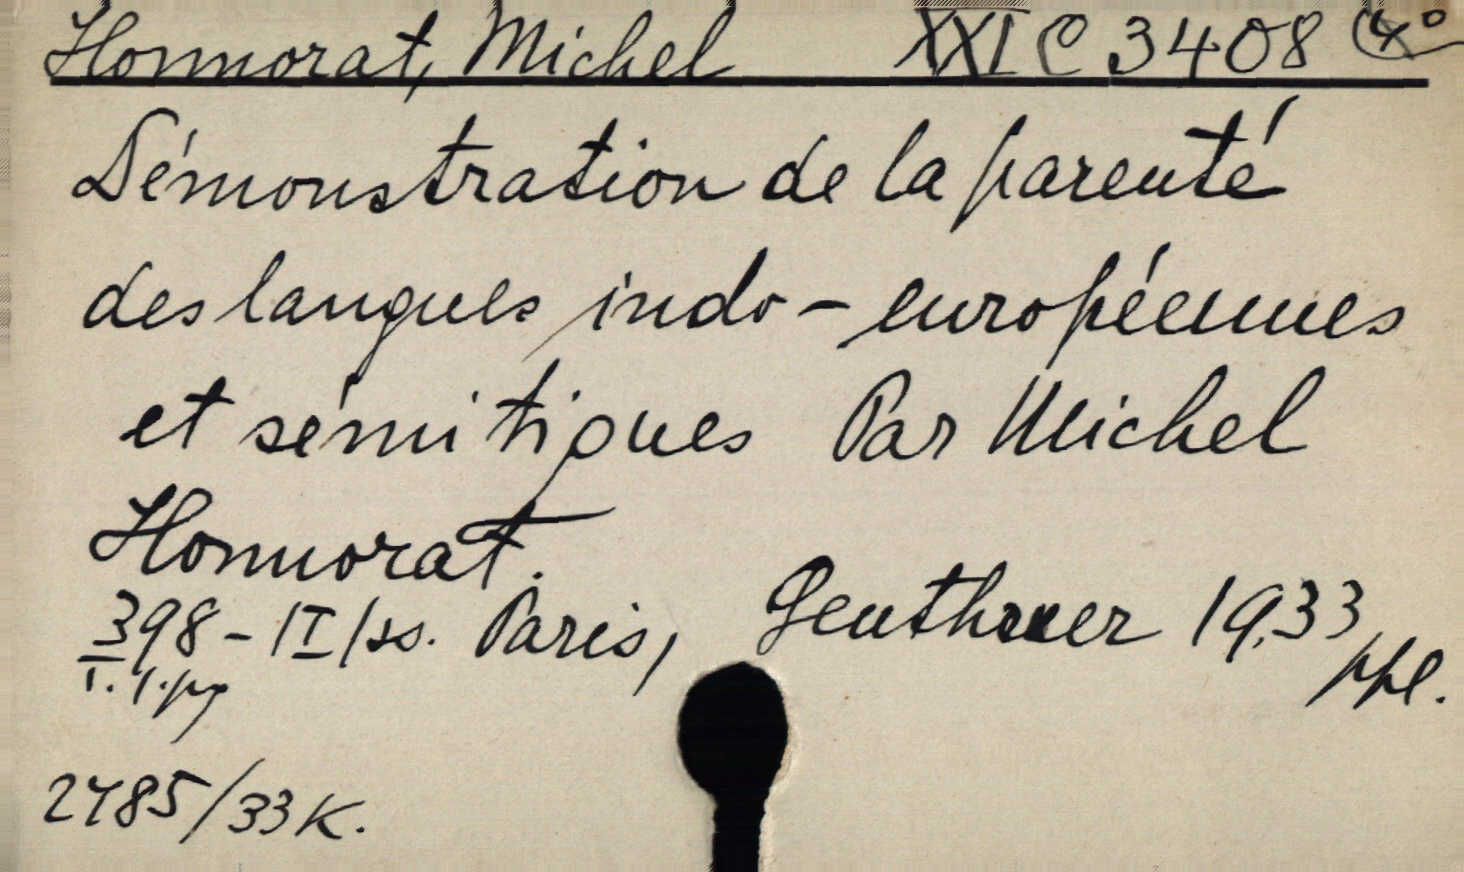 Honnorat, Michel XXI C 3408 4°
Démonstration de la parenté
des langues indo-européennes
et sémitiques Par Michel
Honnorat.
398 - Paris, Geuthner 1933
ppl.
2485/33 K.